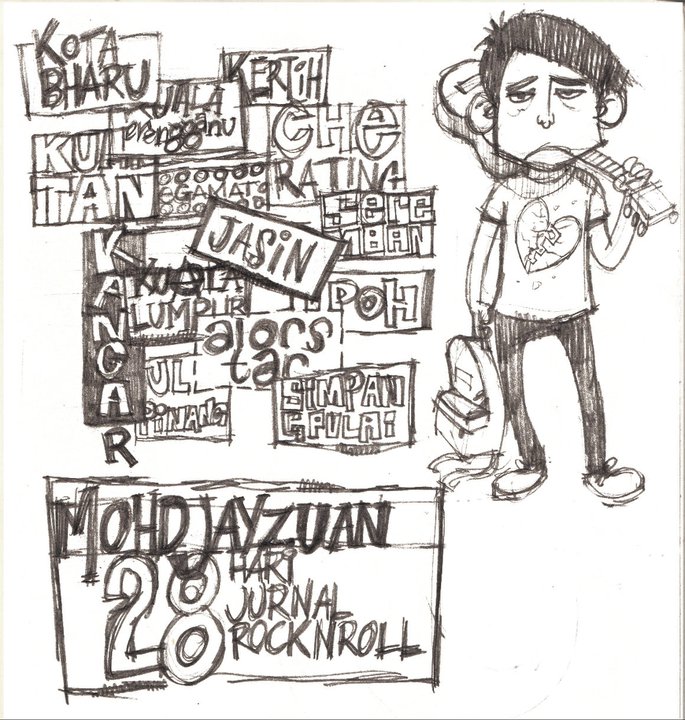 KOTA
BHARU
KERTIH
KUALA
Terengganu
CHE
RATING
KUAN
TAN
SEGAMAT
JASiN
SERE
MBAN
KANGAR
KUALA
LUMPUR
IPOH
alors
tar
PiNANG
SIMPANG
PULAi
MOHDJAYZUAN
28
HARi
JURNAL
ROCKNROLL